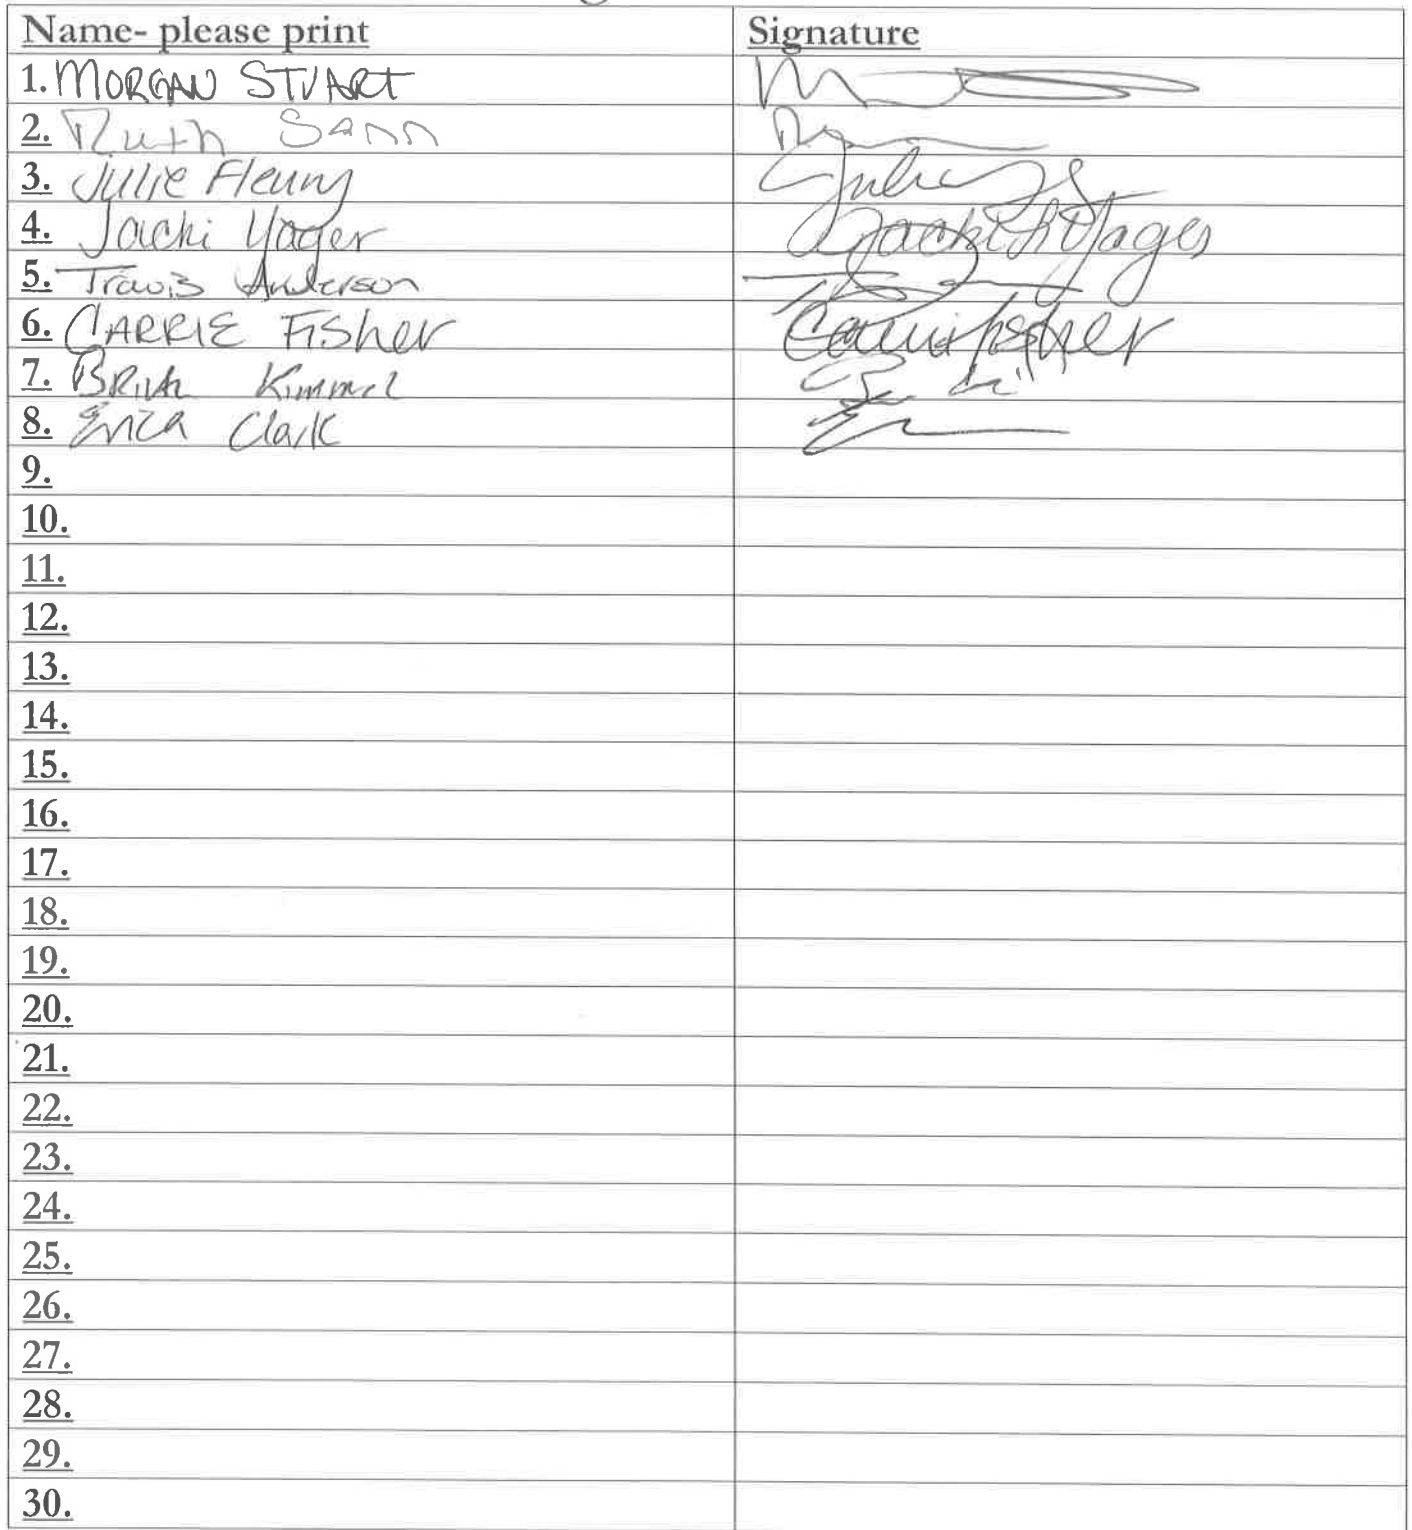 Name- please print Signature
1. MORGAN STUART
2. Ruth Sann
3. Julie Fleury
4. Jacki Yager Jacki Yager
5. Travis Anderson
6. CARRIE FISher Carrie Fisher
7. BRIAN Kimmel
8. Erica Clark
9.
10.
11.
12.
13.
14.
15.
16.
17.
18.
19.
20.
21.
22.
23.
24.
25.
26.
27.
28.
29.
30.